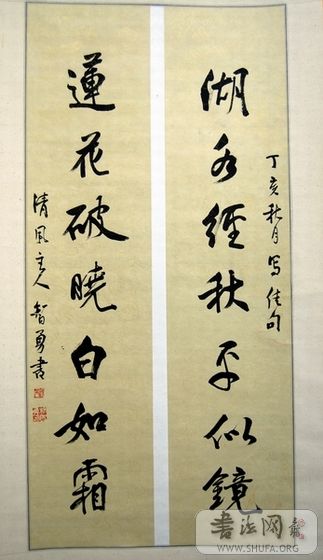 丁亥秋月写佳句
湖水經秋平似鏡
蓮花破曉白如霜
清風主人智勇書
書法网
WWW.SHUFA.ORG